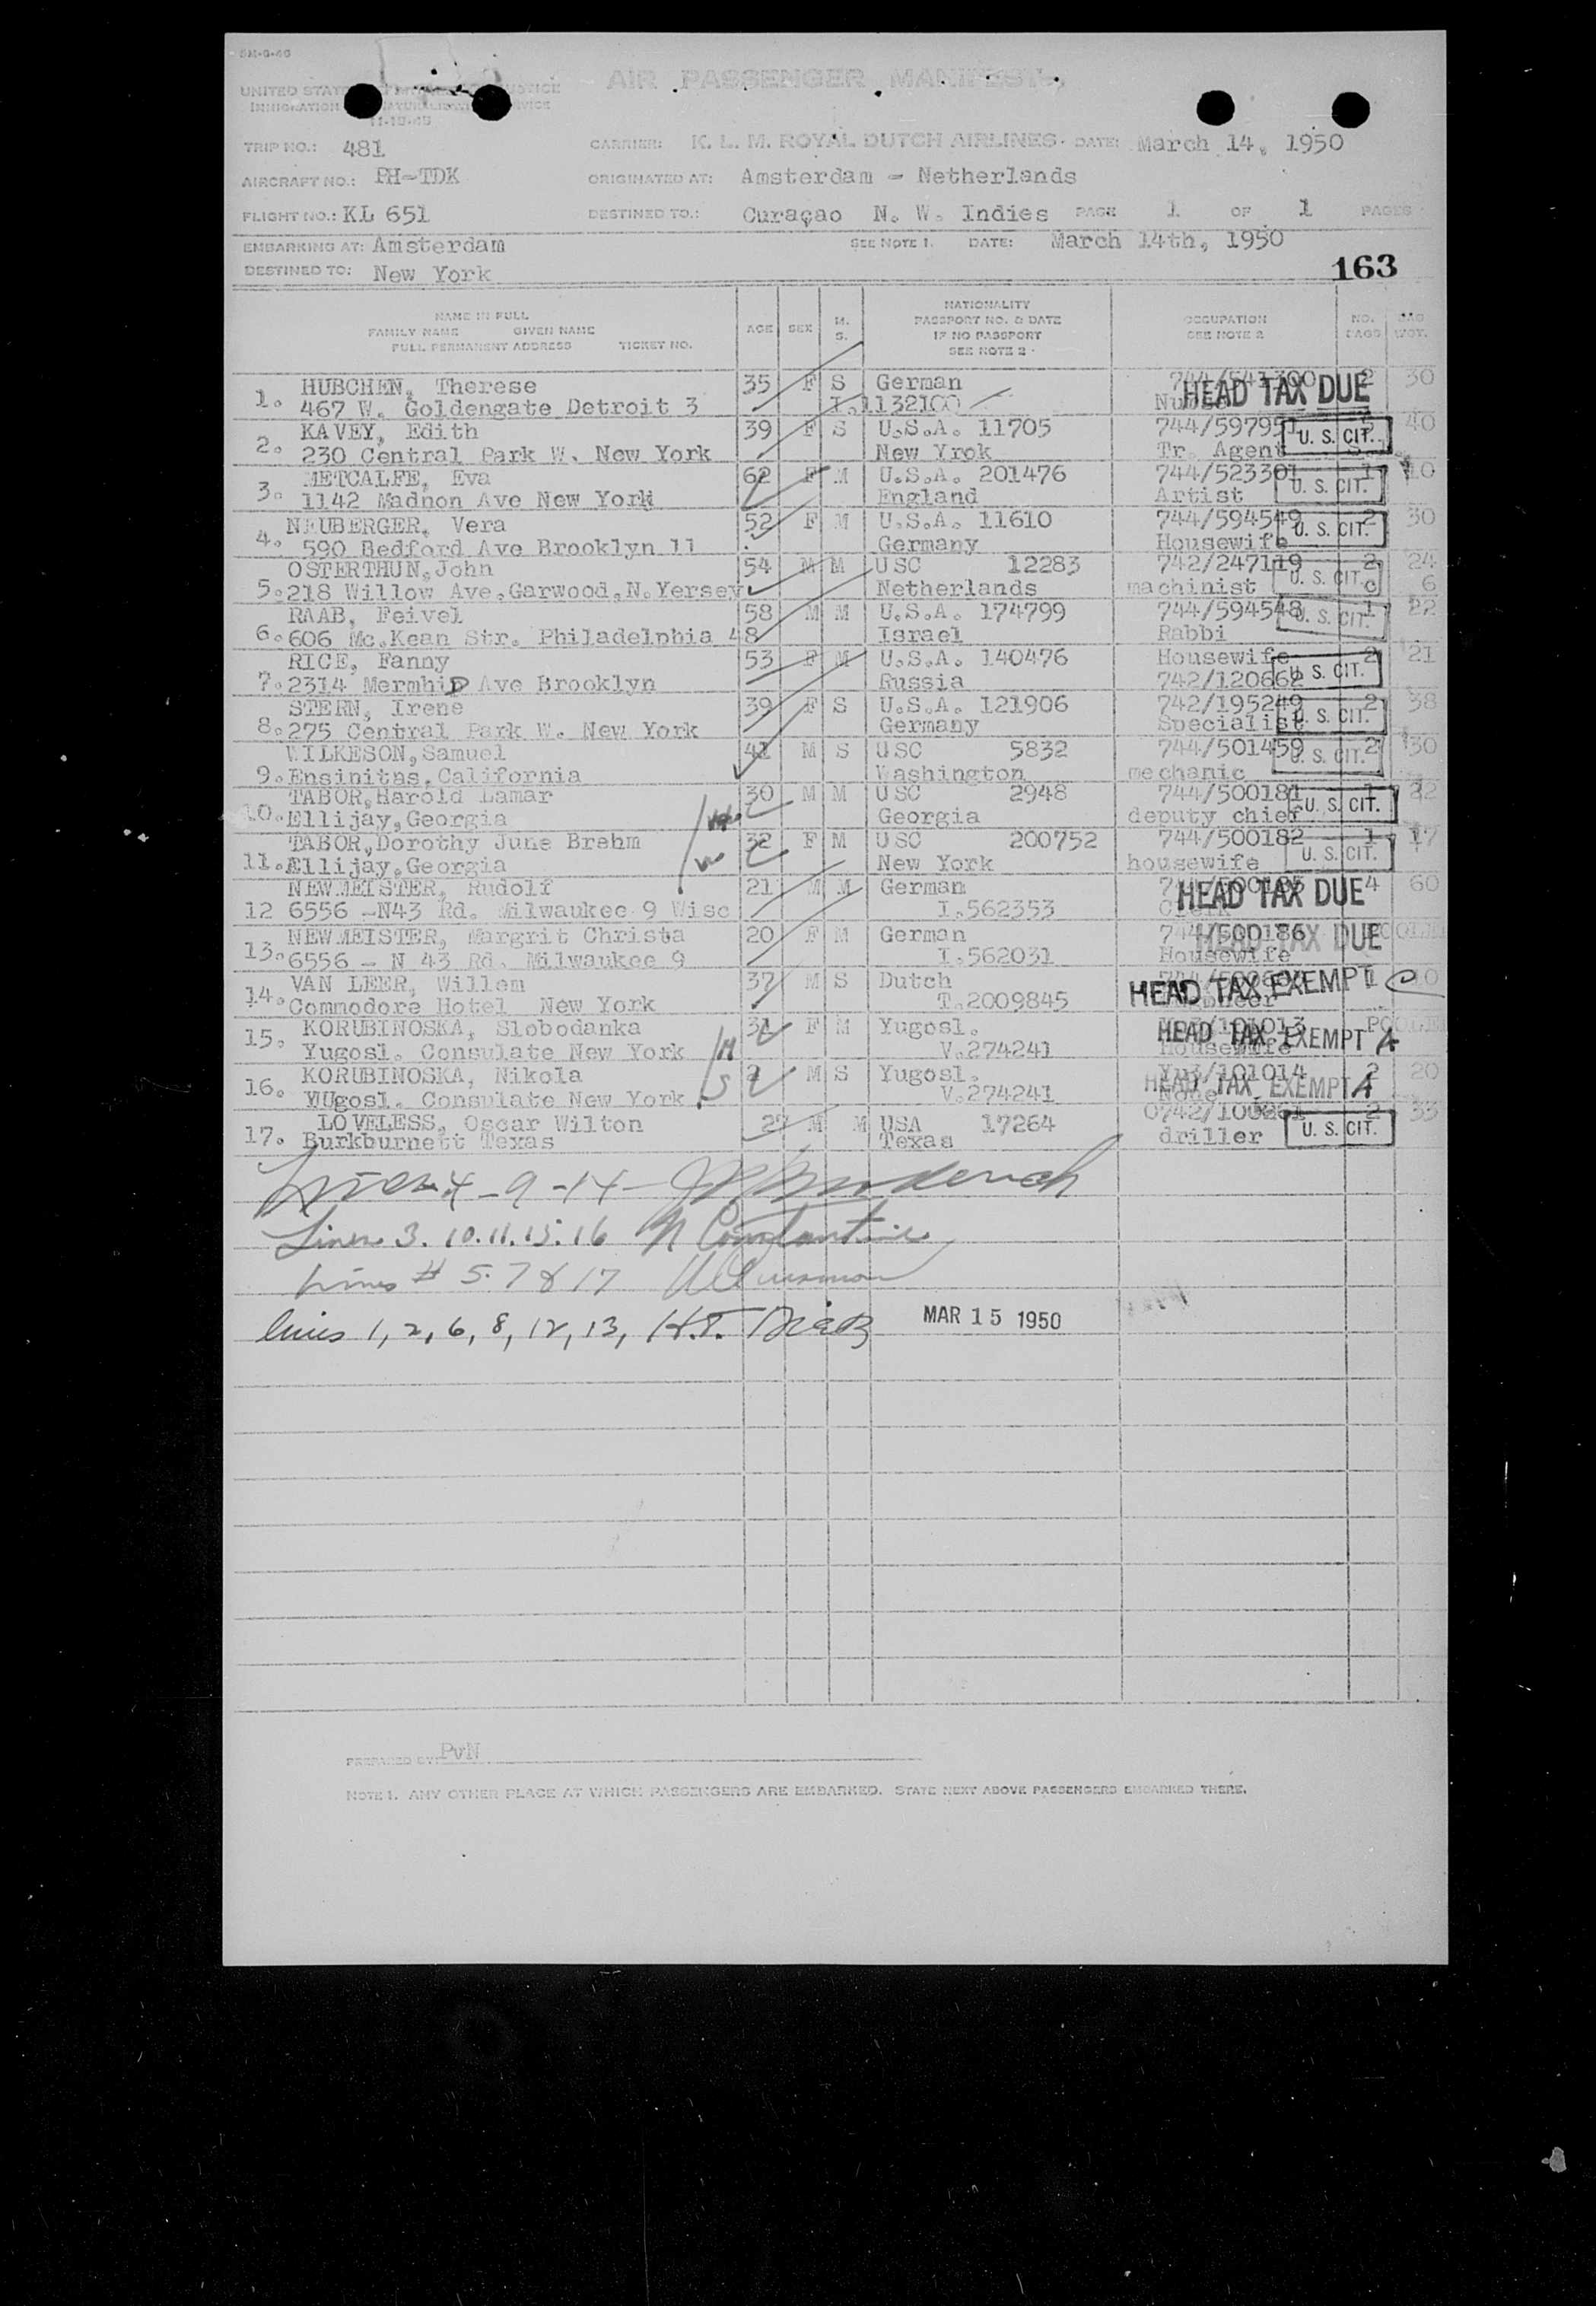 AIR PASSENGER MANIFEST
11-19-49
TRIP NO.: 481 CARRIER: K. L. M. ROYAL DUTCH AIRLINES. DATE: March 14, 1950
AIRCRAFT NO.: PH-TDK ORIGINATED AT: Amsterdam - Netherlands
FLIGHT NO.: KL 651 DESTINED TO.: Curaçao N. W. Indies PAGE 1 OF 1 PAGES
EMBARKING AT: Amsterdam SEE NOTE 1. DATE: March 14th, 1950
DESTINED TO: New York
163
NAME IN FULL
FAMILY NAME GIVEN NAME
FULL PERMANENT ADDRESS TICKET NO.
AGE SEX M. S.
NATIONALITY
PASSPORT NO. & DATE
IF NO PASSPORT
SEE NOTE 2
OCCUPATION
SEE NOTE 2
NO. BAGS
BAG WGT.
HUBCHEN, Therese 35 F S German HEAD TAX DUE 2 30
1. 467 W. Goldengate Detroit 3 I.1132100
KAVEY, Edith 39 F S U.S.A. 11705 744/597951 U. S. CIT. 40
2. 230 Central Park W. New York New Yrok Tr. Agent
METCALFE, Eva 62 F M U.S.A. 201476 744/523301 1 10
3. 1142 Madnon Ave New York England Artist U. S. CIT.
NEUBERGER, Vera 52 F M U.S.A. 11610 744/594549 2 30
4. 590 Bedford Ave Brooklyn 11 Germany Housewife U. S. CIT.
OSTERTHUN, John 54 M M USC 12283 742/247119 2 24
5. 218 Willow Ave, Garwood, N. Yersey Netherlands machinist U. S. CIT. 6
RAAB, Feivel 58 M M U.S.A. 174799 744/594548 1 22
6. 606 Mc.Kean Str. Philadelphia 48 Israel Rabbi U. S. CIT.
RICE, Fanny 53 F M U.S.A. 140476 Housewife 2 21
7. 2314 MermhiD Ave Brooklyn Russia 742/120662 U. S. CIT.
STERN, Irene 39 F S U.S.A. 121906 742/195249 2 38
8. 275 Central Park W. New York Germany Specialist U. S. CIT.
WILKESON, Samuel 41 M S USC 5832 744/501459 2 30
9. Ensinitas, California Washington mechanic U. S. CIT.
TABOR, Harold Lamar 30 M M USC 2948 744/500181 1
10. Ellijay, Georgia Georgia deputy chief U. S. CIT.
TABOR, Dorothy June Brehm 32 F M USC 200752 744/500182 1 17
11. Ellijay, Georgia New York housewife U. S. CIT.
NEWMEISTER, Rudolf 21 M M German HEAD TAX DUE 4 60
12 6556 -N43 Rd. Milwaukee 9 Wisc I.562353 Clerk
NEWMEISTER, Margrit Christa 20 F M German 744/500186 HEAD TAX DUE
13. 6556 - N 43 Rd. Milwaukee 9 I.562031 Housewife
VAN LEER, Willem 37 M S Dutch HEAD TAX EXEMPT 1 10
14. Commodore Hotel New York T.2009845
KORUBINOSKA, Slobodanka 31 F M Yugosl. HEAD TAX EXEMPT A
15. Yugosl. Consulate New York V.274241 Housewife
KORUBINOSKA, Nikola M S Yugosl. 2 20
16. Yugosl. Consulate New York V.274241 None HEAD TAX EXEMPT A
LOVELESS, Oscar Wilton 27 M M USA 17264 2 33
17. Burkburnett Texas Texas driller U. S. CIT.
Lines 4 - 9 - 14
Lines 3. 10. 11. 15. 16 N Constantine
Lines # 5. 7 & 17
lines 1, 2, 6, 8, 12, 13, MAR 15 1950
PREPARED BY: PvN
NOTE 1. ANY OTHER PLACE AT WHICH PASSENGERS ARE EMBARKED. STATE NEXT ABOVE PASSENGERS EMBARKED THERE.